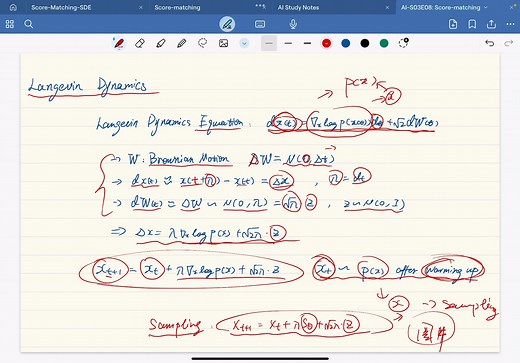 Score-Matching-SDE
Score-matching
AI Study Notes
AI-S03E08: Score-matching
Langevin Dynamics
→ p(x)
Langevin Dynamics Equation: dx(t) = ∇x log p(x(t)) dt + √2 dW(t)
→ W: Brownian Motion ΔW = N(0, Δt)
→ dx(t) ≈ x(t+η) - x(t) = Δx , η = dt
→ dW(t) ≈ ΔW ~ N(0, η) = √η z , z ~ N(0, I)
⇒ Δx = η ∇x log p(x) + √2η · z
x_{t+1} = x_t + η ∇x log p(x) + √2η · z x_t ~ p(x) after warming up
x → sampling
Sampling: x_{t+1} = x_t + η Sθ + √2η · z